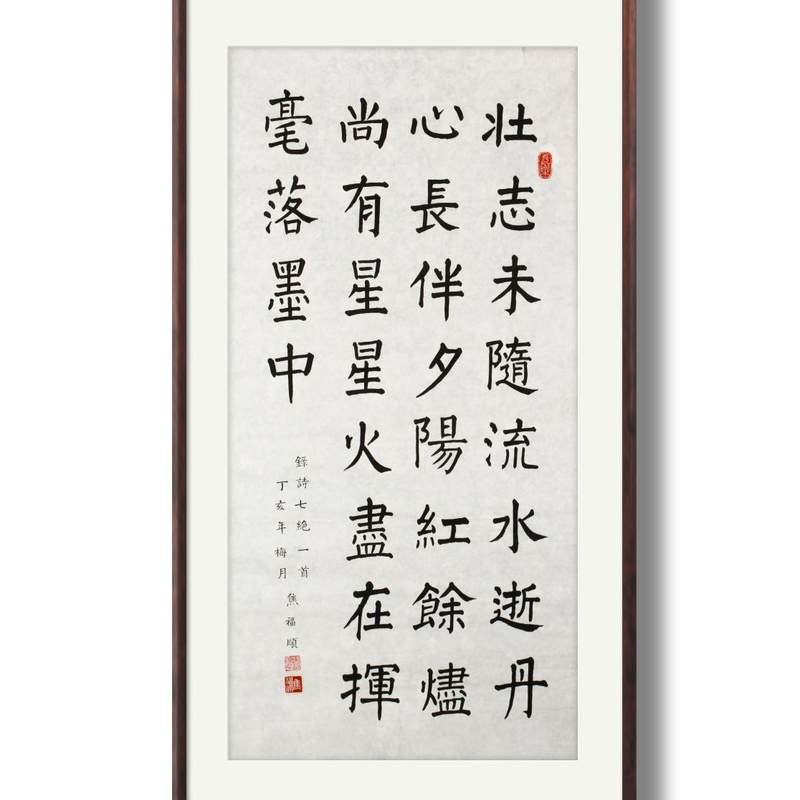 壯志未隨流水逝丹
心長伴夕陽紅餘燼
尚有星星火盡在揮
毫落墨中
錄詩七絕一首
丁亥年梅月焦福順